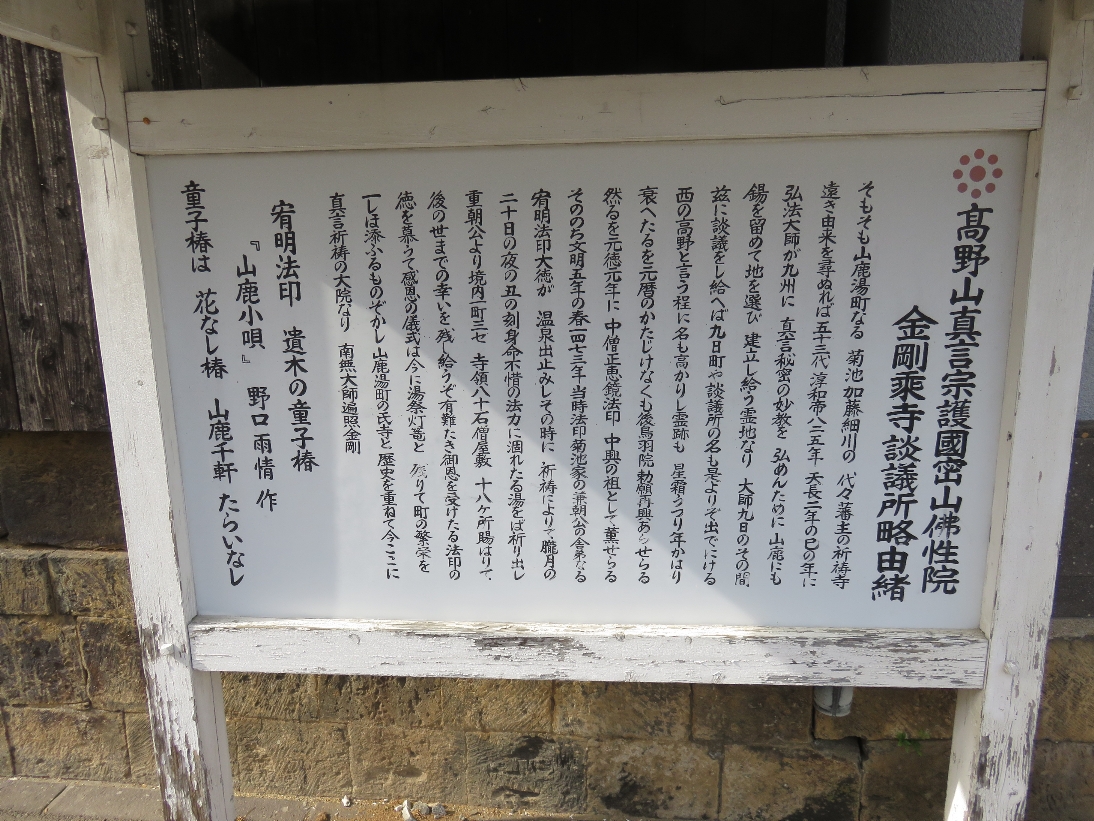 高野山真言宗護國密山佛性院
金剛乘寺談議所略由緒
そもそも山鹿湯町なる 菊池加藤細川の 代々藩主の祈祷寺
遠き由来を尋ぬれば五十三代 淳和帝八二五年 天長二年の巳の年に
弘法大師が九州に 真言秘密の妙教を 弘めんために 山鹿にも
錫を留めて地を選び 建立し給う霊地なり 大師九日のその間
玆に談議をし給へば九日町や談議所の名も是よりぞ出でにける
西の高野と言う程に名も高かりし霊跡も 星霜うつり年かはり
衰へたるを元暦のかたじけなくも後鳥羽院勅願再興あらせらる
然るを元徳元年に 中僧正恵鏡法印 中興の祖として薫せらる
そののち文明五年の春一四七三年 当時法印菊池家の兼朝公の舎弟なる
宥明法印大徳が 温泉出止みしその時に 祈祷によりて朧月の
二十日の夜の丑の刻身命不惜の法力に涸れたる湯をば祈り出し
重朝公より境内二町三セ 寺領八十石僧屋敷 十八ヶ所賜はりて
後の世までの幸いを残し給うぞ有難たき御恩を受けたる法印の
徳を慕うて感恩の儀式は今に湯祭灯篭と 残りて町の繁栄を
一しほ添ふるものぞかし山鹿湯町の氏寺と歴史を重ねて今ここに
真言祈祷の大院なり 南無大師遍照金剛
宥明法印 遺木の童子椿
『山鹿小唄』 野口雨情 作
童子椿は 花なし椿 山鹿千軒 たらいなし